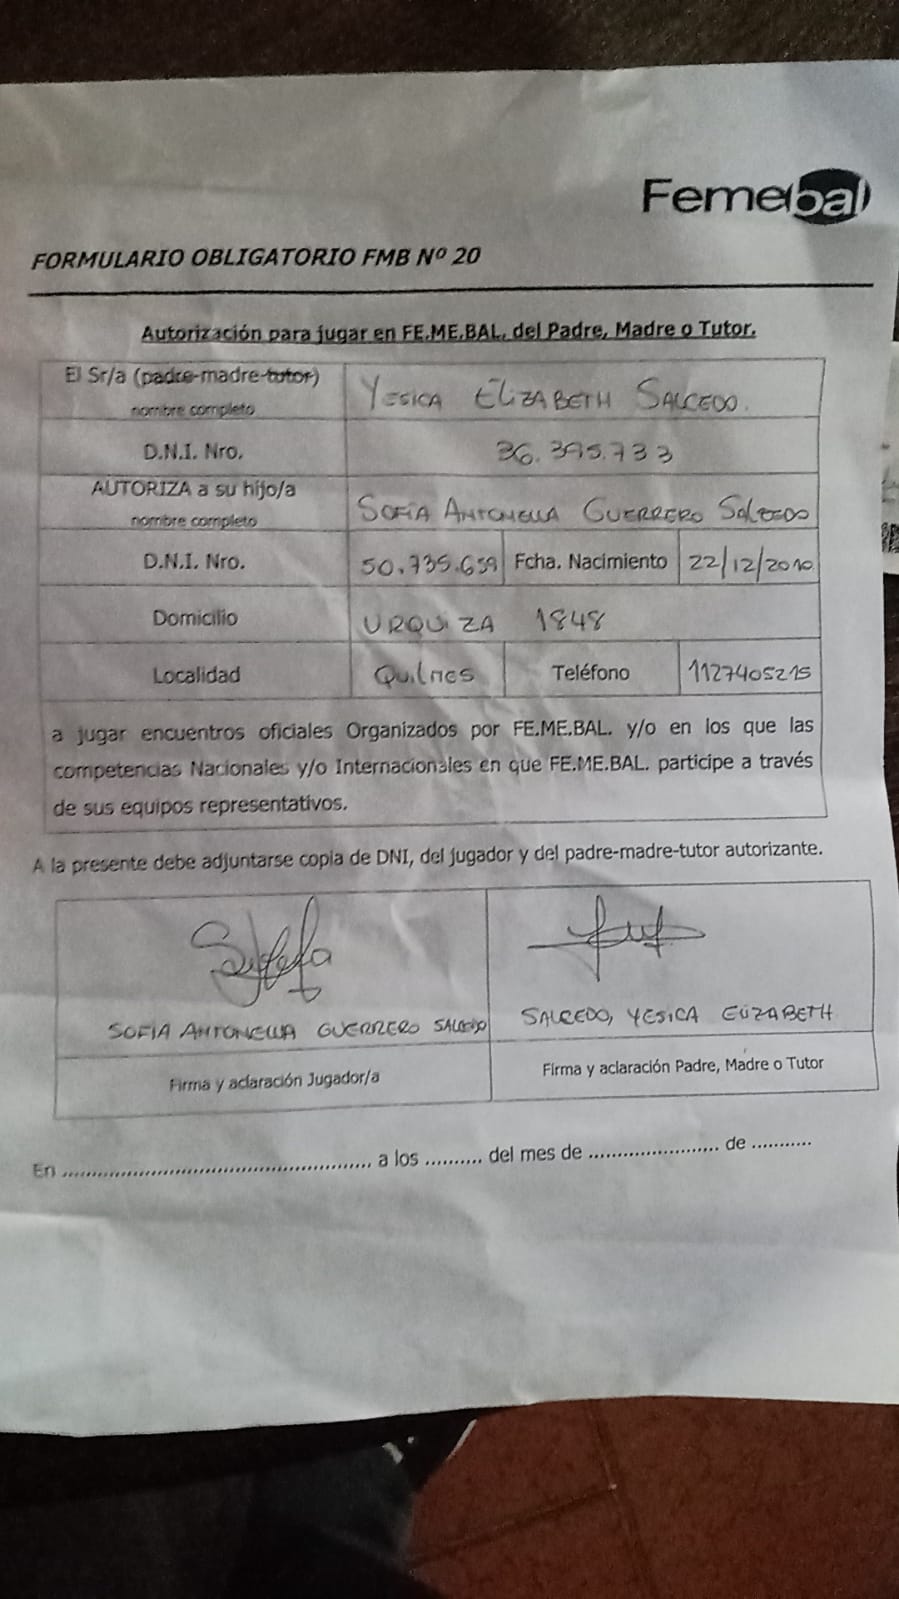 Femebal
FORMULARIO OBLIGATORIO FMB Nº 20
Autorización para jugar en FE.ME.BAL. del Padre, Madre o Tutor.
El Sr/a (padre-madre-tutor) YESICA ELIZABETH SALCEDO.
nombre completo
D.N.I. Nro. 36.395.733
AUTORIZA a su hijo/a SOFIA ANTONELLA GUERRERO SALCEDO
nombre completo
D.N.I. Nro. 50.735.659 Fcha. Nacimiento 22/12/2010
Domicilio URQUIZA 1848
Localidad Quilmes Teléfono 1127405215
a jugar encuentros oficiales Organizados por FE.ME.BAL. y/o en los que las
competencias Nacionales y/o Internacionales en que FE.ME.BAL. participe a través
de sus equipos representativos.
A la presente debe adjuntarse copia de DNI, del jugador y del padre-madre-tutor autorizante.
SOFIA ANTONELLA GUERRERO SALCEDO SALCEDO, YESICA ELIZABETH
Firma y aclaración Jugador/a Firma y aclaración Padre, Madre o Tutor
En ................................................ a los .......... del mes de ...................... de ...........